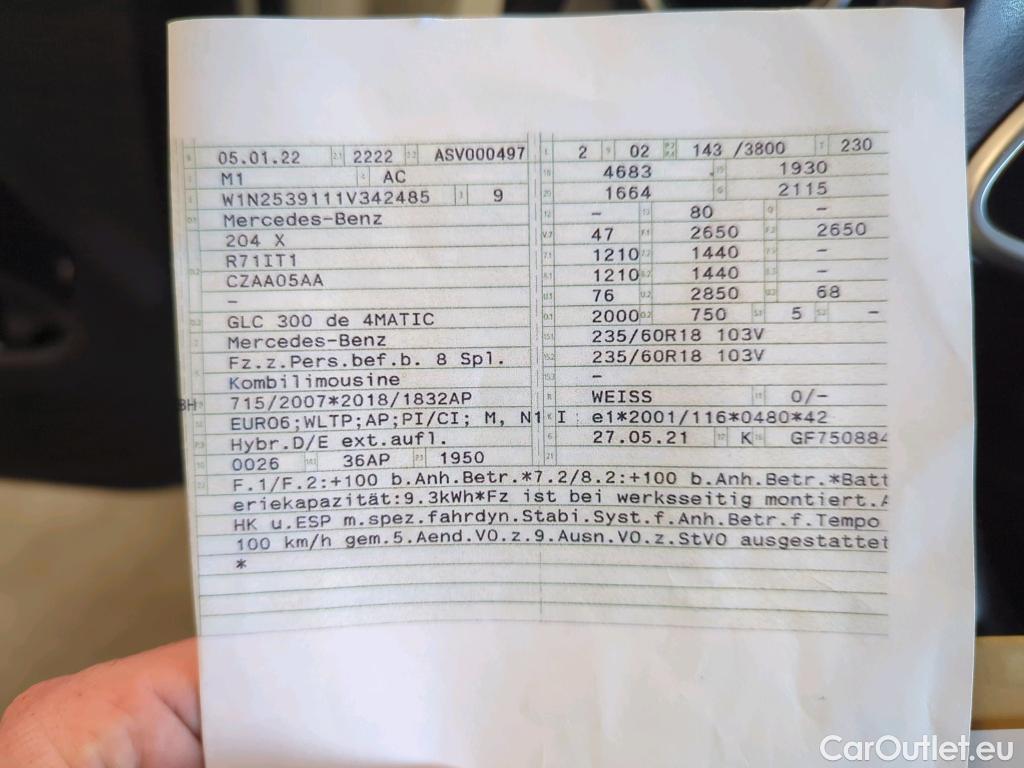 05.01.22 2222 ASV000497 2 02 143 /3800 230
M1 AC 4683 1930
W1N2539111V342485 9 1664 2115
Mercedes-Benz - 80 -
204 X 47 2650 2650
R71IT1 1210 1440 -
CZAA05AA 1210 1440 -
- 76 2850 68
GLC 300 de 4MATIC 2000 750 5 -
Mercedes-Benz 235/60R18 103V
Fz.z.Pers.bef.b. 8 Spl. 235/60R18 103V
Kombilimousine -
715/2007*2018/1832AP WEISS 0/-
EURO6;WLTP;AP;PI/CI; M, N1 I e1*2001/116*0480*42
Hybr.D/E ext.aufl. 27.05.21 K GF750884
0026 36AP 1950
F.1/F.2:+100 b.Anh.Betr.*7.2/8.2:+100 b.Anh.Betr.*Batt
eriekapazität:9.3kWh*Fz ist bei werksseitig montiert.A
HK u.ESP m.spez.fahrdyn.Stabi.Syst.f.Anh.Betr.f.Tempo
100 km/h gem.5.Aend.VO.z.9.Ausn.VO.z.StVO ausgestattet
*
CarOutlet.eu